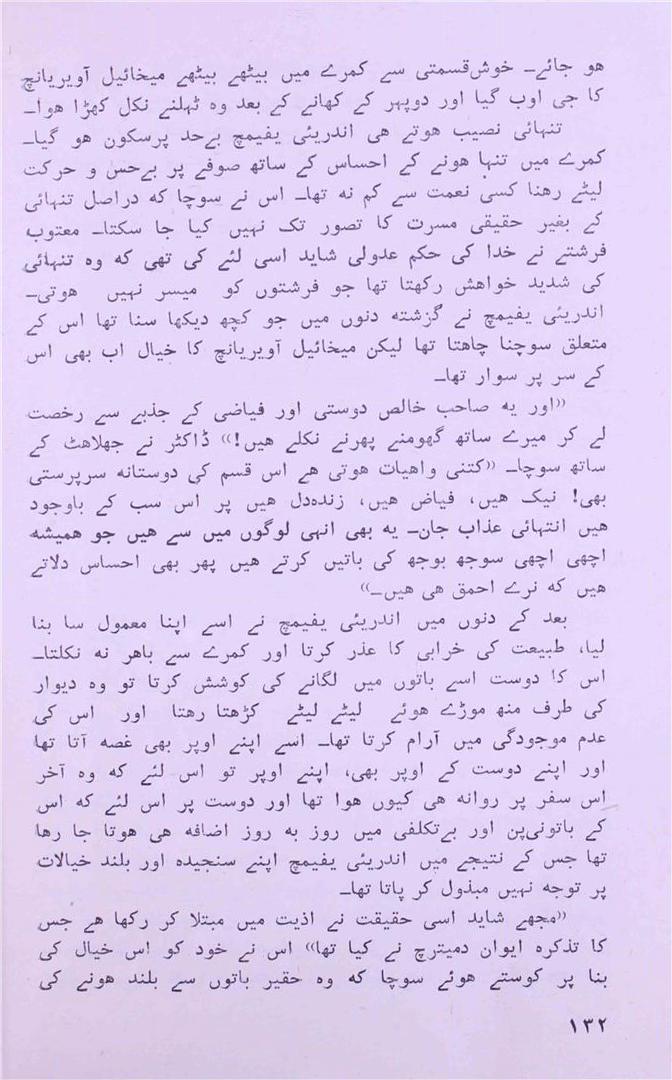 ھو جائے۔ خوش‌قسمتی سے کمرے میں بیٹھے بیٹھے میخائیل آویریانچ
کا جی اوب گیا اور دوپہر کے کھانے کے بعد وہ ٹہلنے نکل کھڑا ھوا۔
تنہائی نصیب ھوتے ھی اندریئی یفیمچ بےحد پرسکون ھو گیا۔
کمرے میں تنہا ھونے کے احساس کے ساتھ صوفے پر بےحس و حرکت
لیٹے رھنا کسی نعمت سے کم نہ تھا۔ اس نے سوچا کہ دراصل تنہائی
کے بغیر حقیقی مسرت کا تصور تک نہیں کیا جا سکتا۔ معتوب
فرشتے نے خدا کی حکم عدولی شاید اسی لئے کی تھی کہ وہ تنہائی
کی شدید خواھش رکھتا تھا جو فرشتوں کو میسر نہیں ھوتی۔
اندریئی یفیمچ نے گزشتہ دنوں میں جو کچھ دیکھا سنا تھا اس کے
متعلق سوچنا چاھتا تھا لیکن میخائیل آویریانچ کا خیال اب بھی اس
کے سر پر سوار تھا۔
«اور یہ صاحب خالص دوستی اور فیاضی کے جذبے سے رخصت
لے کر میرے ساتھ گھومنے پھرنے نکلے ھیں!» ڈاکٹر نے جھلاھٹ کے
ساتھ سوچا۔ «کتنی واھیات ھوتی ھے اس قسم کی دوستانہ سرپرستی
بھی! نیک ھیں، فیاض ھیں، زندہ‌دل ھیں پر اس سب کے باوجود
ھیں انتہائی عذاب جان۔ یہ بھی انہی لوگوں میں سے ھیں جو ھمیشہ
اچھی اچھی سوجھ بوجھ کی باتیں کرتے ھیں پھر بھی احساس دلاتے
ھیں کہ نرے احمق ھی ھیں۔»
بعد کے دنوں میں اندریئی یفیمچ نے اسے اپنا معمول سا بنا
لیا، طبیعت کی خرابی کا عذر کرتا اور کمرے سے باھر نہ نکلتا۔
اس کا دوست اسے باتوں میں لگانے کی کوشش کرتا تو وہ دیوار
کی طرف منھ موڑے ھوئے لیٹے لیٹے کڑھتا رھتا اور اس کی
عدم موجودگی میں آرام کرتا تھا۔ اسے اپنے اوپر بھی غصہ آتا تھا
اور اپنے دوست کے اوپر بھی، اپنے اوپر تو اس لئے کہ وہ آخر
اس سفر پر روانہ ھی کیوں ھوا تھا اور دوست پر اس لئے کہ اس
کے باتونی‌پن اور بےتکلفی میں روز بہ روز اضافہ ھی ھوتا جا رھا
تھا جس کے نتیجے میں اندریئی یفیمچ اپنے سنجیدہ اور بلند خیالات
پر توجہ نہیں مبذول کر پاتا تھا۔
«مجھے شاید اسی حقیقت نے اذیت میں مبتلا کر رکھا ھے جس
کا تذکرہ ایوان دمیترچ نے کیا تھا» اس نے خود کو اس خیال کی
بنا پر کوستے ھوئے سوچا کہ وہ حقیر باتوں سے بلند ھونے کی
۱۳۲